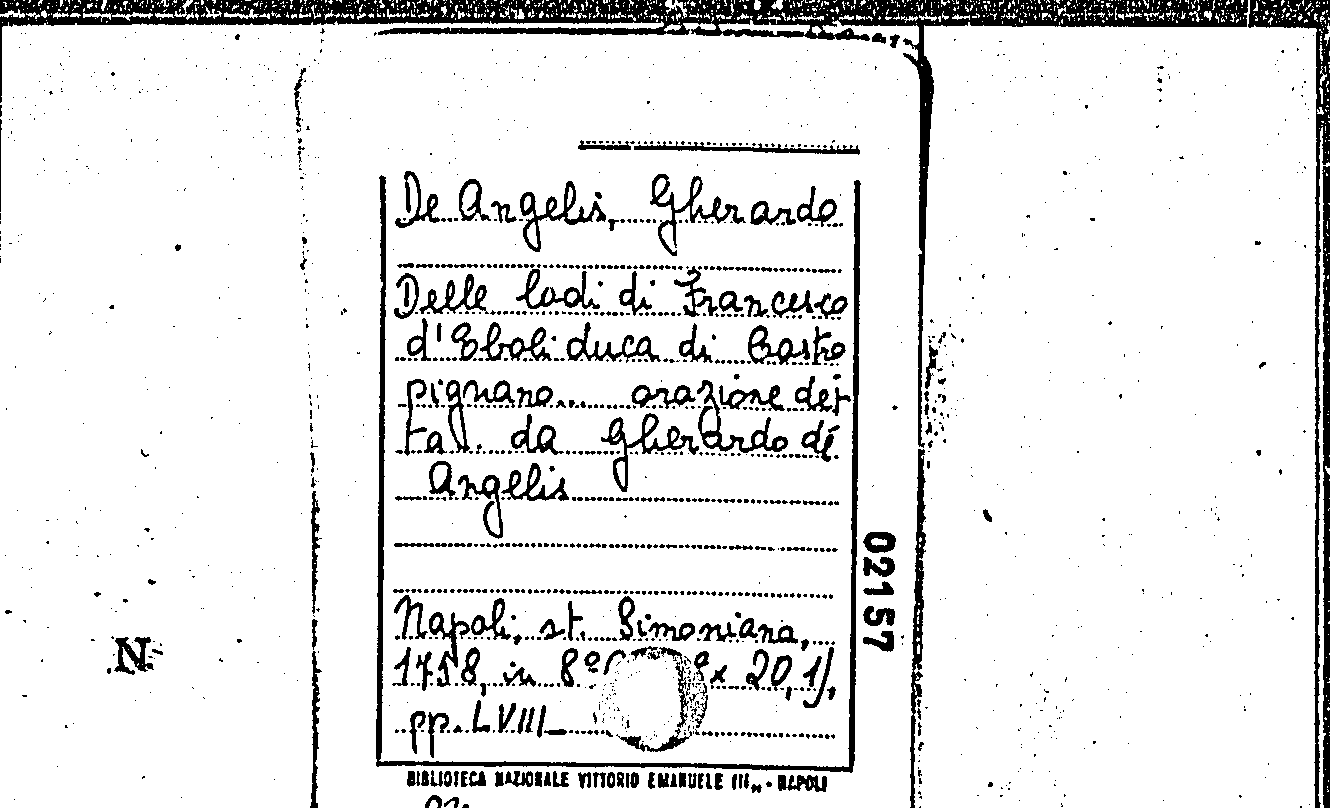 De Angelis, Gherardo
Delle lodi di Francesco
d'Eboli duca di Castro
pignano... orazione det
ta... da Gherardo de'
Angelis
Napoli, st. Simoniana,
1758, in 8º x 20,1),
pp. LVIII
BIBLIOTECA NAZIONALE VITTORIO EMANUELE III,, - NAPOLI
02157
N